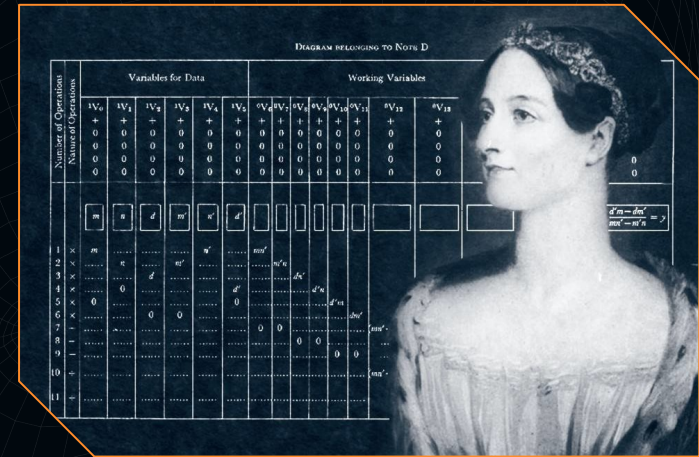 DIAGRAM BELONGING TO NOTE D
Number of Operations
Nature of Operations
Variables for Data
Working Variables
¹V₀ ¹V₁ ¹V₂ ¹V₃ ¹V₄ ¹V₅ ⁰V₆ ⁰V₇ ⁰V₈ ⁰V₉ ⁰V₁₀ ⁰V₁₁ ⁰V₁₂ ⁰V₁₃
+ + + + + + + + + + + + + +
0 0 0 0 0 0 0 0 0 0 0 0 0 0
0 0 0 0 0 0 0 0 0 0 0 0 0 0
0 0 0 0 0 0 0 0 0 0 0 0 0 0 0
0 0 0 0 0 0 0 0 0 0 0 0 0 0 0
m n d m' n' d' d'm−dm' / mn'−m'n = y
1 × m ..... ..... ..... n' ..... mn'
2 × ..... n ..... m' ..... ..... ..... m'n
3 × ..... ..... d ..... ..... ..... ..... ..... dn'
4 × ..... 0 ..... ..... ..... d' ..... ..... ..... d'n
5 × 0 ..... ..... ..... ..... 0 ..... ..... ..... ..... d'm
6 × ..... ..... 0 0 ..... ..... ..... ..... ..... ..... ..... dm'
7 − ..... ..... ..... ..... ..... ..... 0 0 ..... ..... ..... ..... mn'-
8 − ..... ..... ..... ..... ..... ..... ..... ..... 0 0 ..... ..... ...
9 − ..... ..... ..... ..... ..... ..... ..... ..... ..... ..... 0 0 ...
10 ÷ ..... ..... ..... ..... ..... ..... ..... ..... ..... ..... ..... ..... mn'-
11 ÷ ..... ..... ..... ..... ..... ..... ..... ..... ..... ..... ..... ..... ...